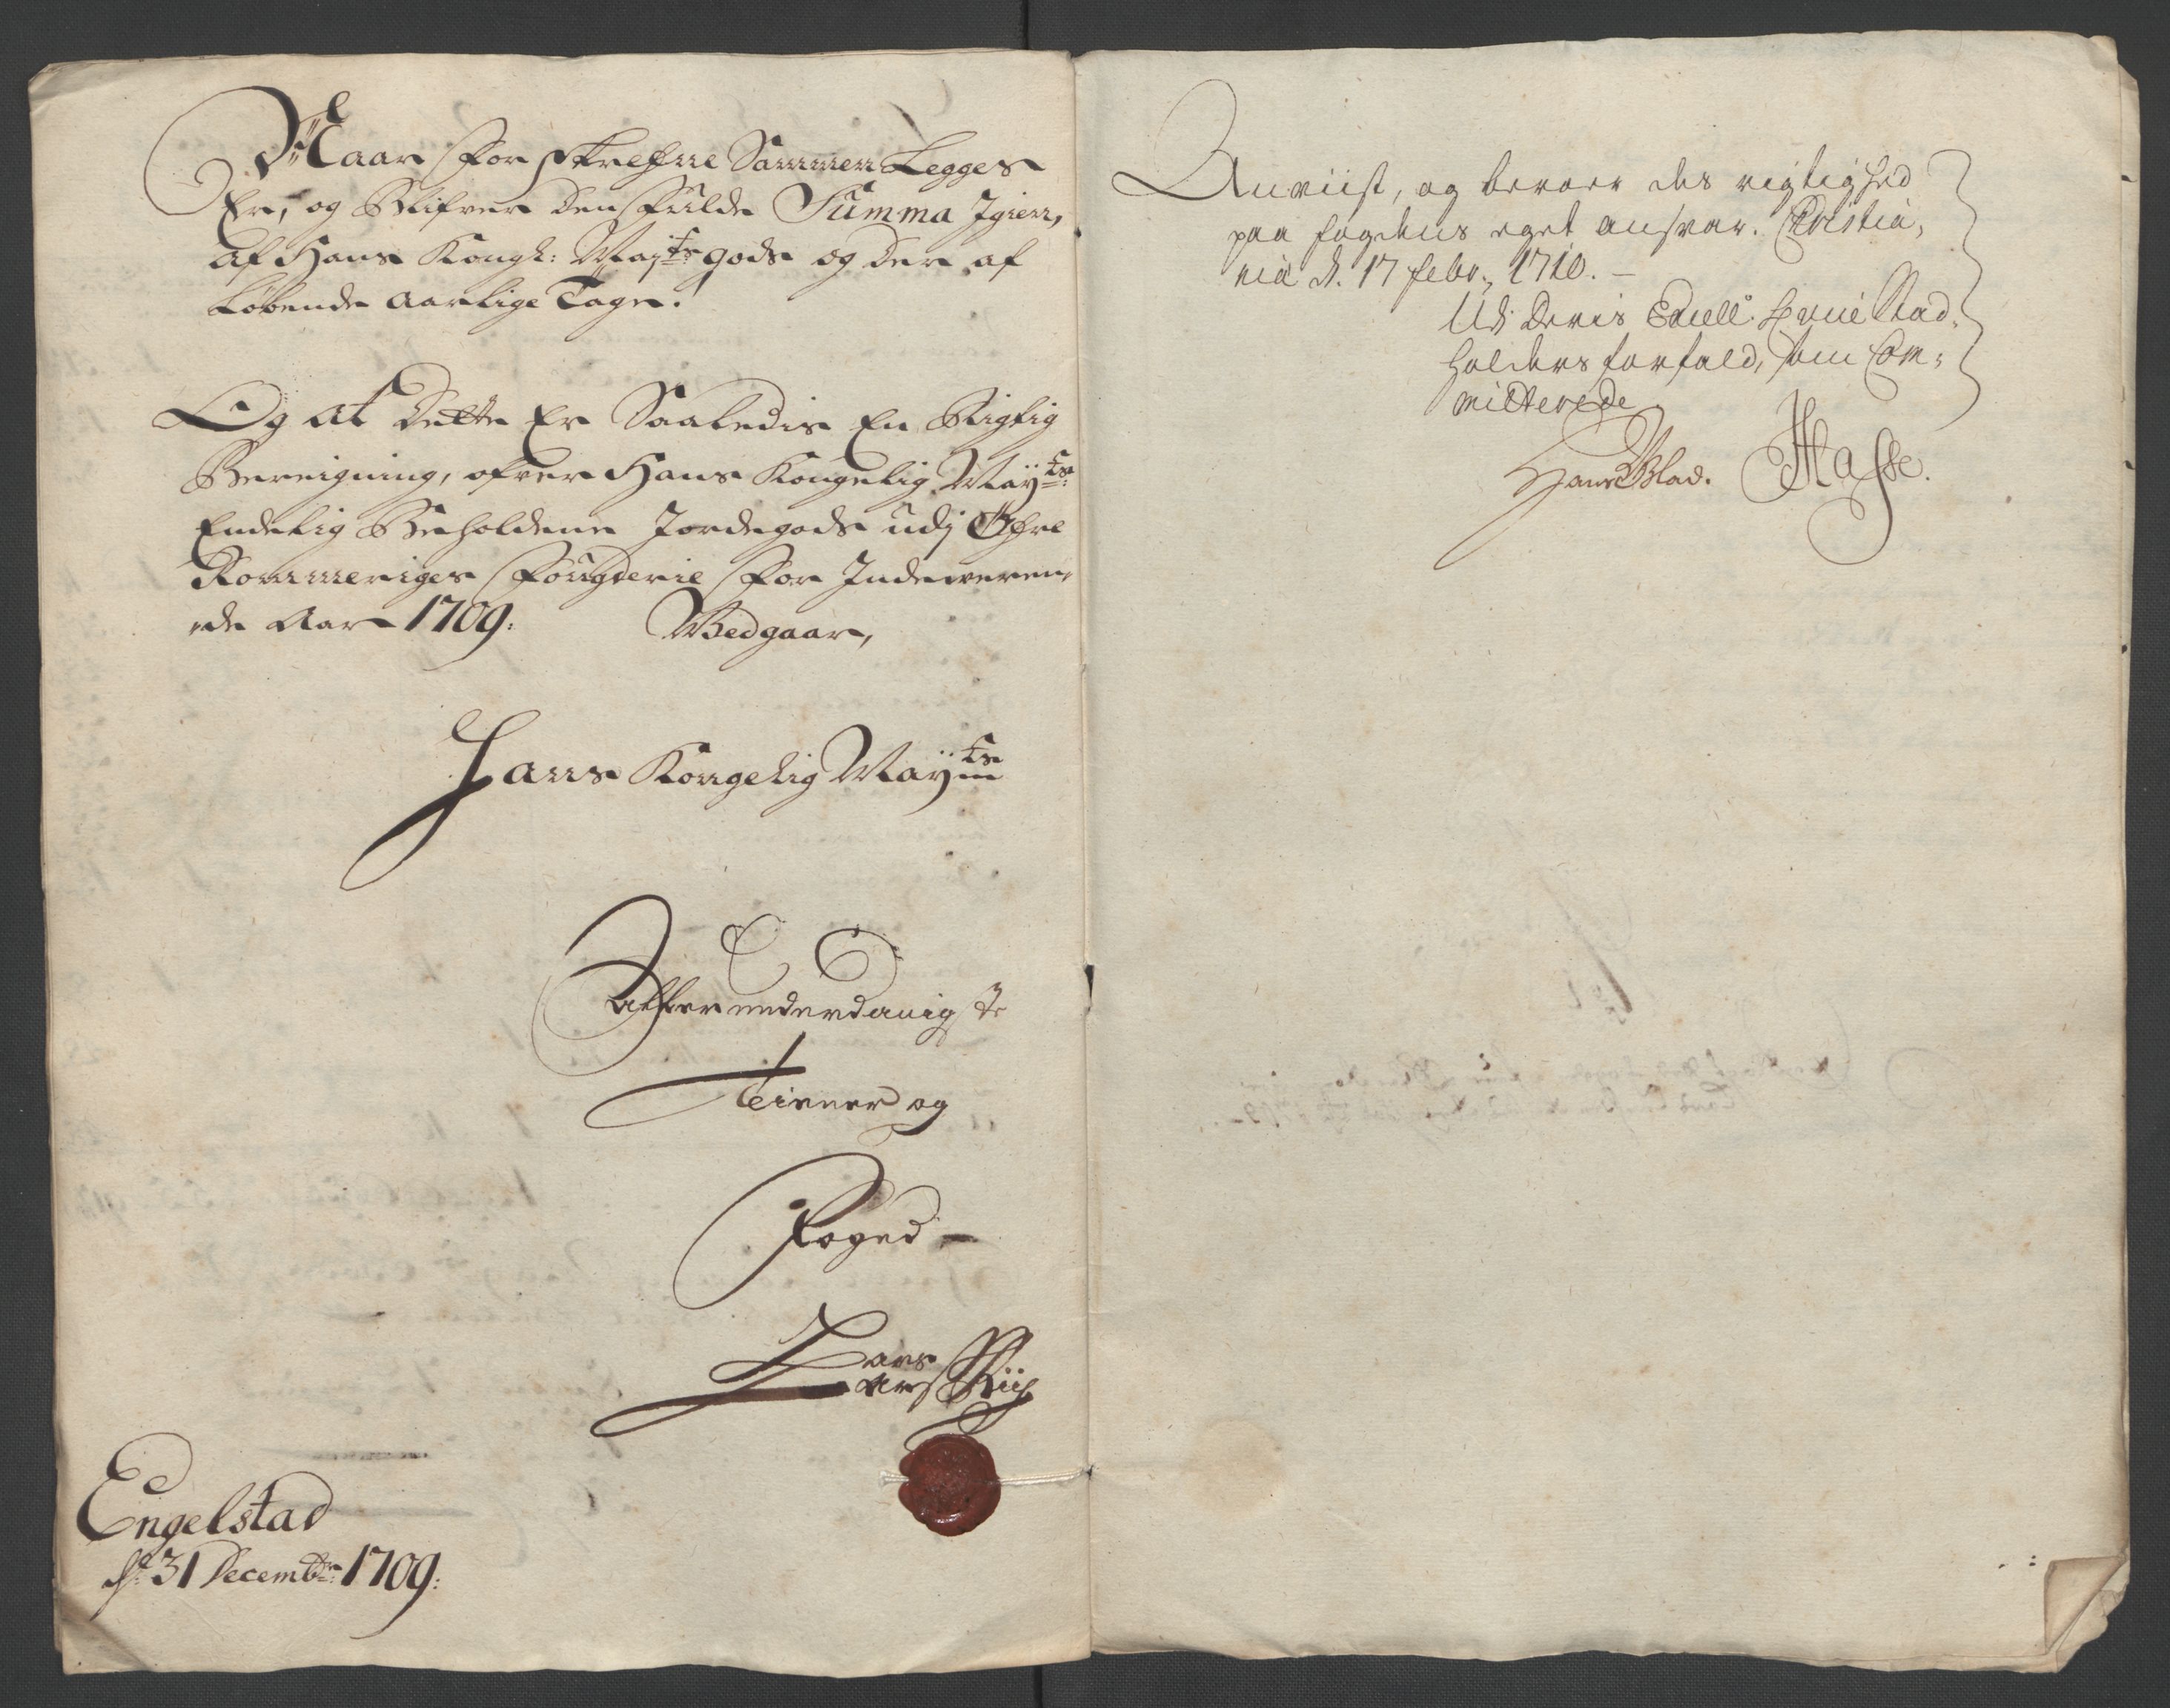 Naar forskrefne Sammen Legges
Er, og Blifver den fulde Summa Igien,
af Hans Kongl: May:ts gods og der af
Løbende Aarlige Tage.
Og at Dette Er Saaledis En Rigtig
Bereigning, ofver Hans Kongelig May:ts
Endelig Beholdene Jordegods udj Øfre
Rommeriges Fougderie for Indeveren,
,de Aar 1709:
Vedgaar,
Hans Kongelig Mayts
allerunderdanigste
Tienner og
Foged
Lars
Riis
Engelstad
d: 31 Decembr: 1709:
Anviist, og beroer des rigtighed
paa fogdens eget ansvar. Christia,
nia d. 17 febr: 1710.
Udi Deris Excell: Herr Stad,
holders forfald, som Com,
mitterede
Hans Blad. Hasse.